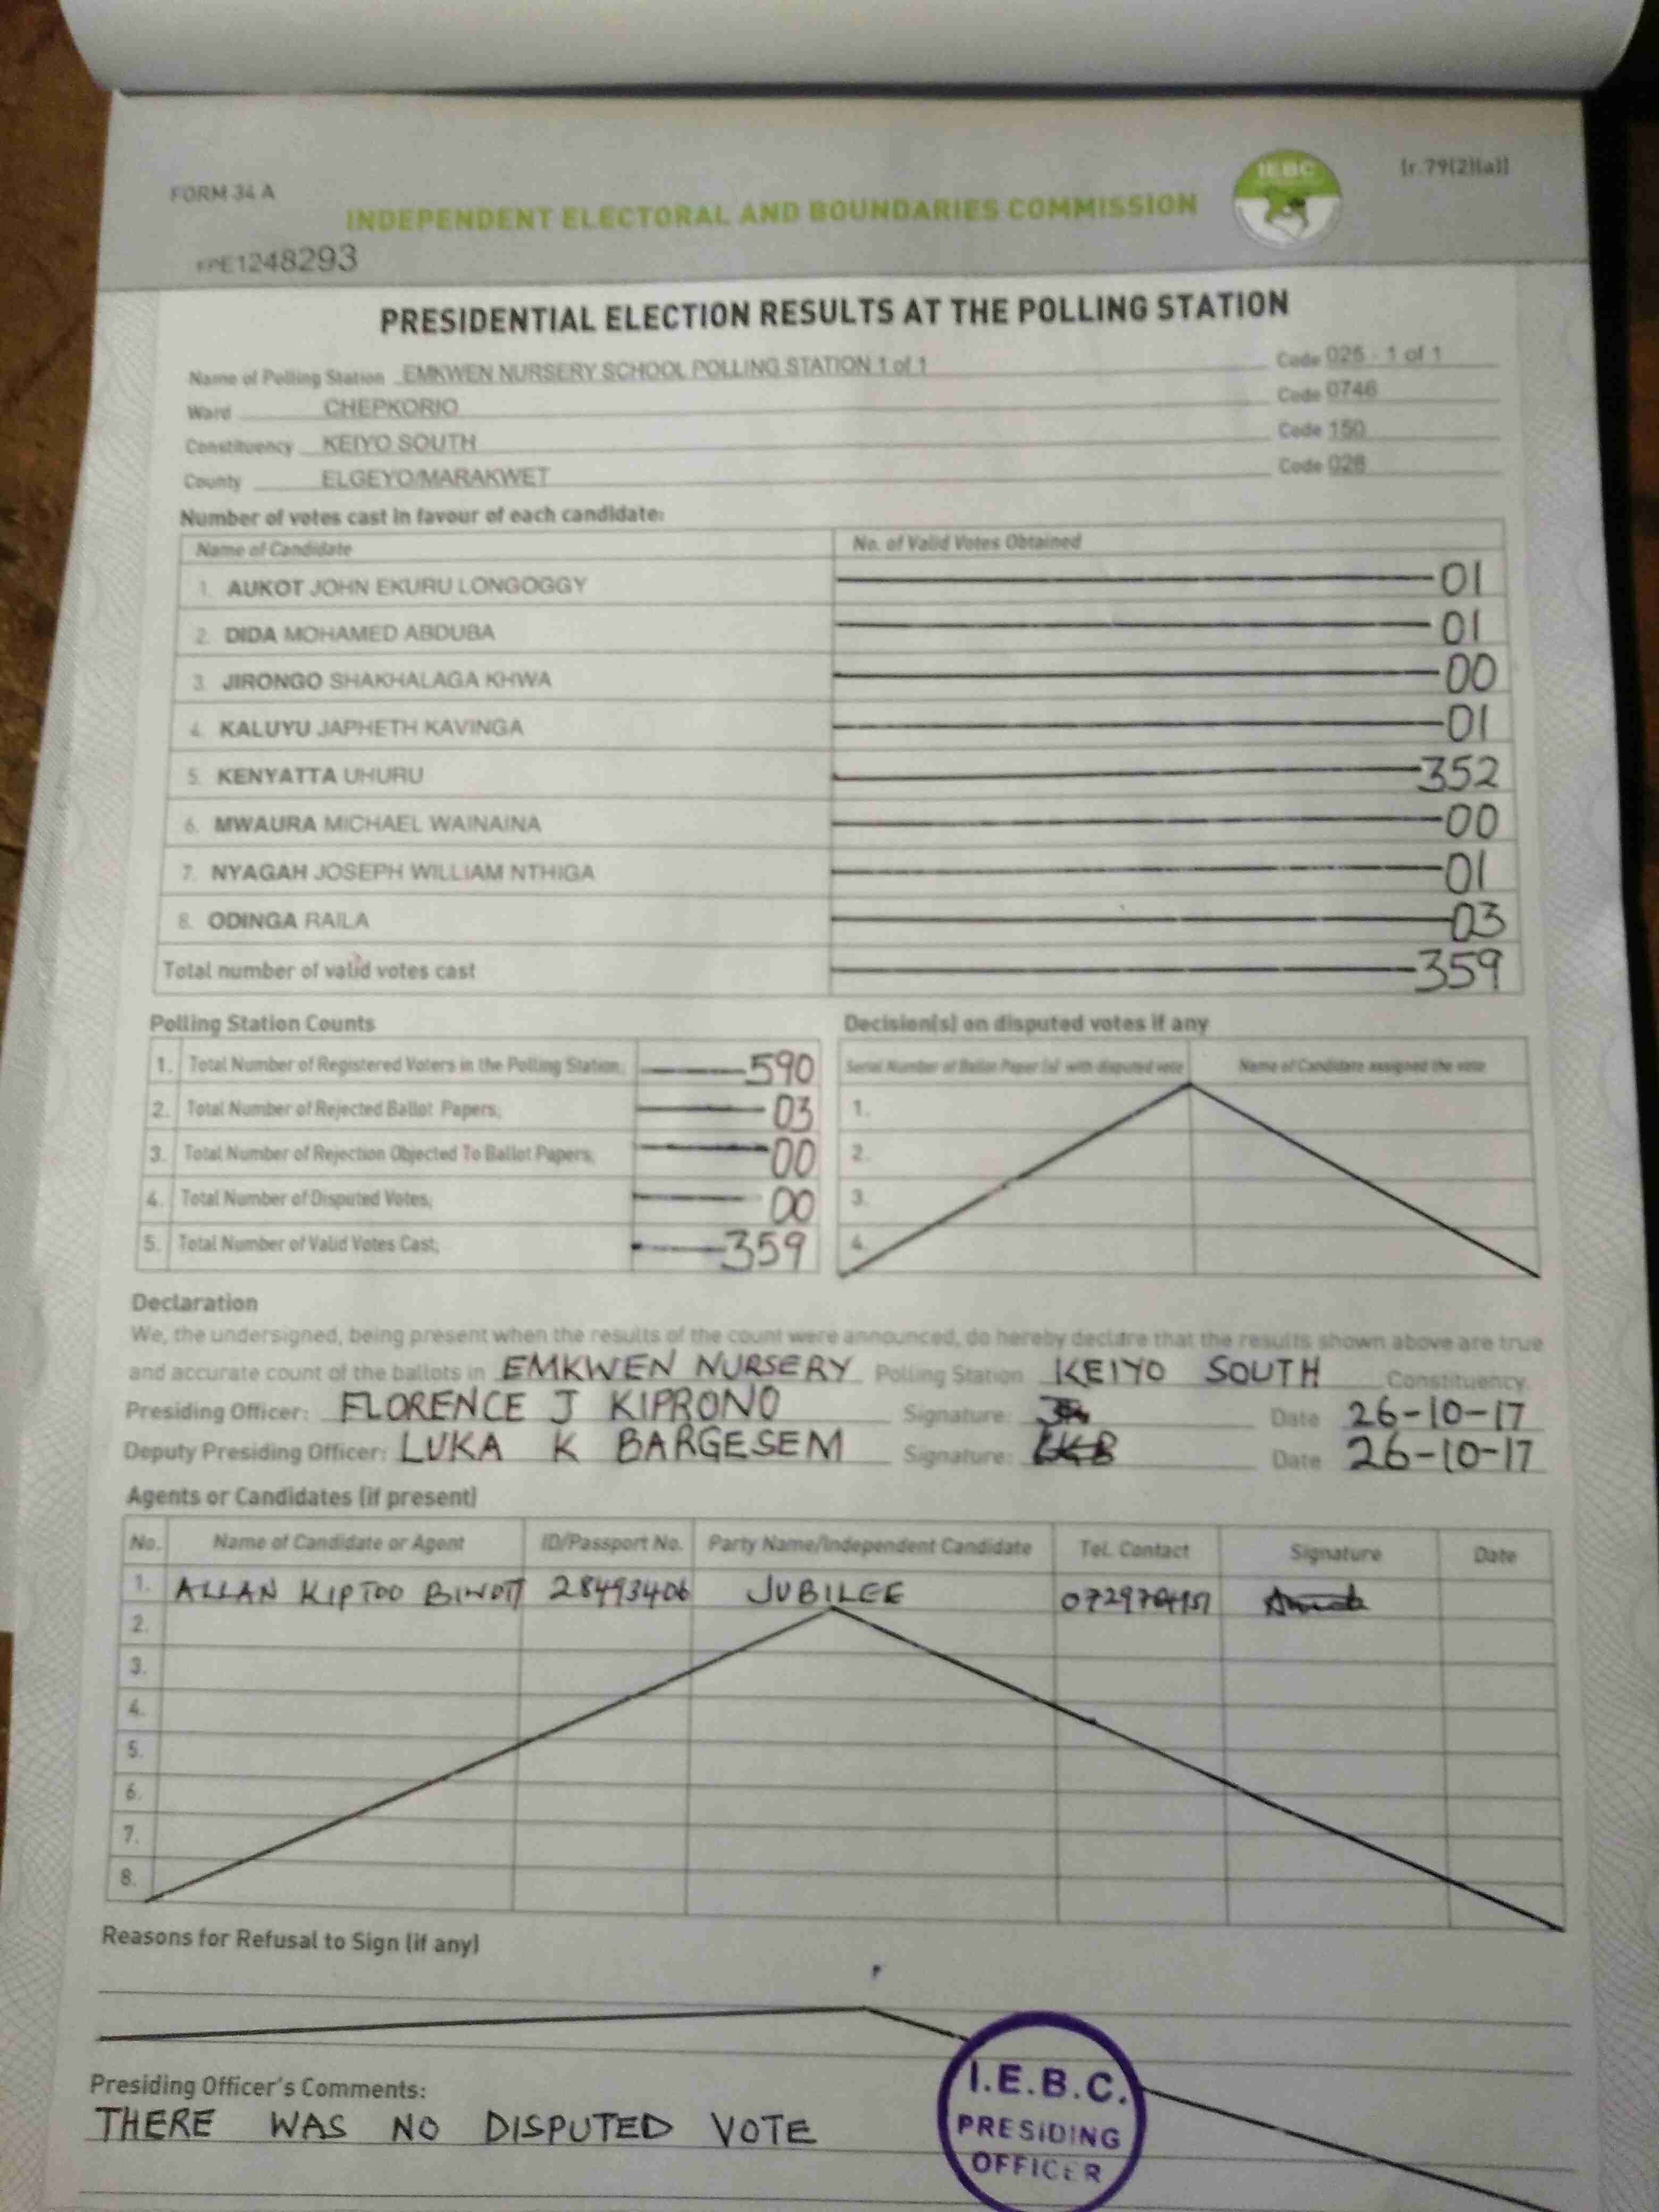 FORM 34 A
[r.79(2)(a)]
IEBC
INDEPENDENT ELECTORAL AND BOUNDARIES COMMISSION
FPE1248293
PRESIDENTIAL ELECTION RESULTS AT THE POLLING STATION
Name of Polling Station EMKWEN NURSERY SCHOOL POLLING STATION 1 of 1 Code 025 - 1 of 1
Ward CHEPKORIO Code 0746
Constituency KEIYO SOUTH Code 150
County ELGEYO/MARAKWET Code 028
Number of votes cast in favour of each candidate:
Name of Candidate No. of Valid Votes Obtained
1. AUKOT JOHN EKURU LONGOGGY 01
2. DIDA MOHAMED ABDUBA 01
3. JIRONGO SHAKHALAGA KHWA 00
4. KALUYU JAPHETH KAVINGA 01
5. KENYATTA UHURU 352
6. MWAURA MICHAEL WAINAINA 00
7. NYAGAH JOSEPH WILLIAM NTHIGA 01
8. ODINGA RAILA 03
Total number of valid votes cast 359
Polling Station Counts
1. Total Number of Registered Voters in the Polling Station; 590
2. Total Number of Rejected Ballot Papers; 03
3. Total Number of Rejection Objected To Ballot Papers; 00
4. Total Number of Disputed Votes; 00
5. Total Number of Valid Votes Cast; 359
Decision(s) on disputed votes if any
Serial Number of Ballot Paper (s) with disputed vote Name of Candidate assigned the vote
1.
2.
3.
4.
Declaration
We, the undersigned, being present when the results of the count were announced, do hereby declare that the results shown above are true
and accurate count of the ballots in EMKWEN NURSERY Polling Station KEIYO SOUTH Constituency.
Presiding Officer: FLORENCE J KIPRONO Signature: Date 26-10-17
Deputy Presiding Officer: LUKA K BARGESEM Signature: LKB Date 26-10-17
Agents or Candidates (if present)
No. Name of Candidate or Agent ID/Passport No. Party Name/Independent Candidate Tel. Contact Signature Date
1. ALLAN KIPTOO 28493406 JUBILEE
2.
3.
4.
5.
6.
7.
8.
Reasons for Refusal to Sign (if any)
Presiding Officer's Comments:
THERE WAS NO DISPUTED VOTE
I.E.B.C.
PRESIDING
OFFICER